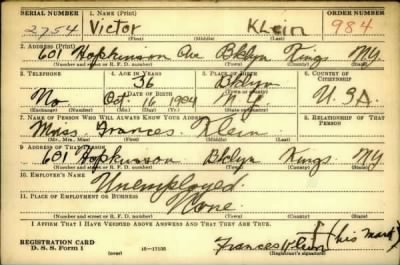 SERIAL NUMBER 1. NAME (Print) ORDER NUMBER
2754 Victor KLein 984
(First) (Middle) (Last)
2. ADDRESS (Print)
601 Hopkinson Ave Bklyn Kings NY.
(Number and street or R. F. D. number) (Town) (County) (State)
3. TELEPHONE 4. AGE IN YEARS 5. PLACE OF BIRTH 6. COUNTRY OF CITIZENSHIP
36 Bklyn
No. Oct. 16 1904 N.Y. U.S.A.
(Exchange) (Number) (Mo.) (Day) (Yr.) (State or country)
7. NAME OF PERSON WHO WILL ALWAYS KNOW YOUR ADDRESS 8. RELATIONSHIP OF THAT PERSON
Miss. Frances Klein
(Mr., Mrs., Miss) (First) (Middle) (Last)
9. ADDRESS OF THAT PERSON
601 Hopkinson Bklyn Kings NY
(Number and street or R. F. D. number) (Town) (County) (State)
10. EMPLOYER'S NAME
Unemployed.
11. PLACE OF EMPLOYMENT OR BUSINESS
None.
(Number and street or R. F. D. number) (Town) (County) (State)
I AFFIRM THAT I HAVE VERIFIED ABOVE ANSWERS AND THAT THEY ARE TRUE.
REGISTRATION CARD
D. S. S. FORM 1 (over) 16—17105
Frances Klein (his mark)
(Registrant's signature)